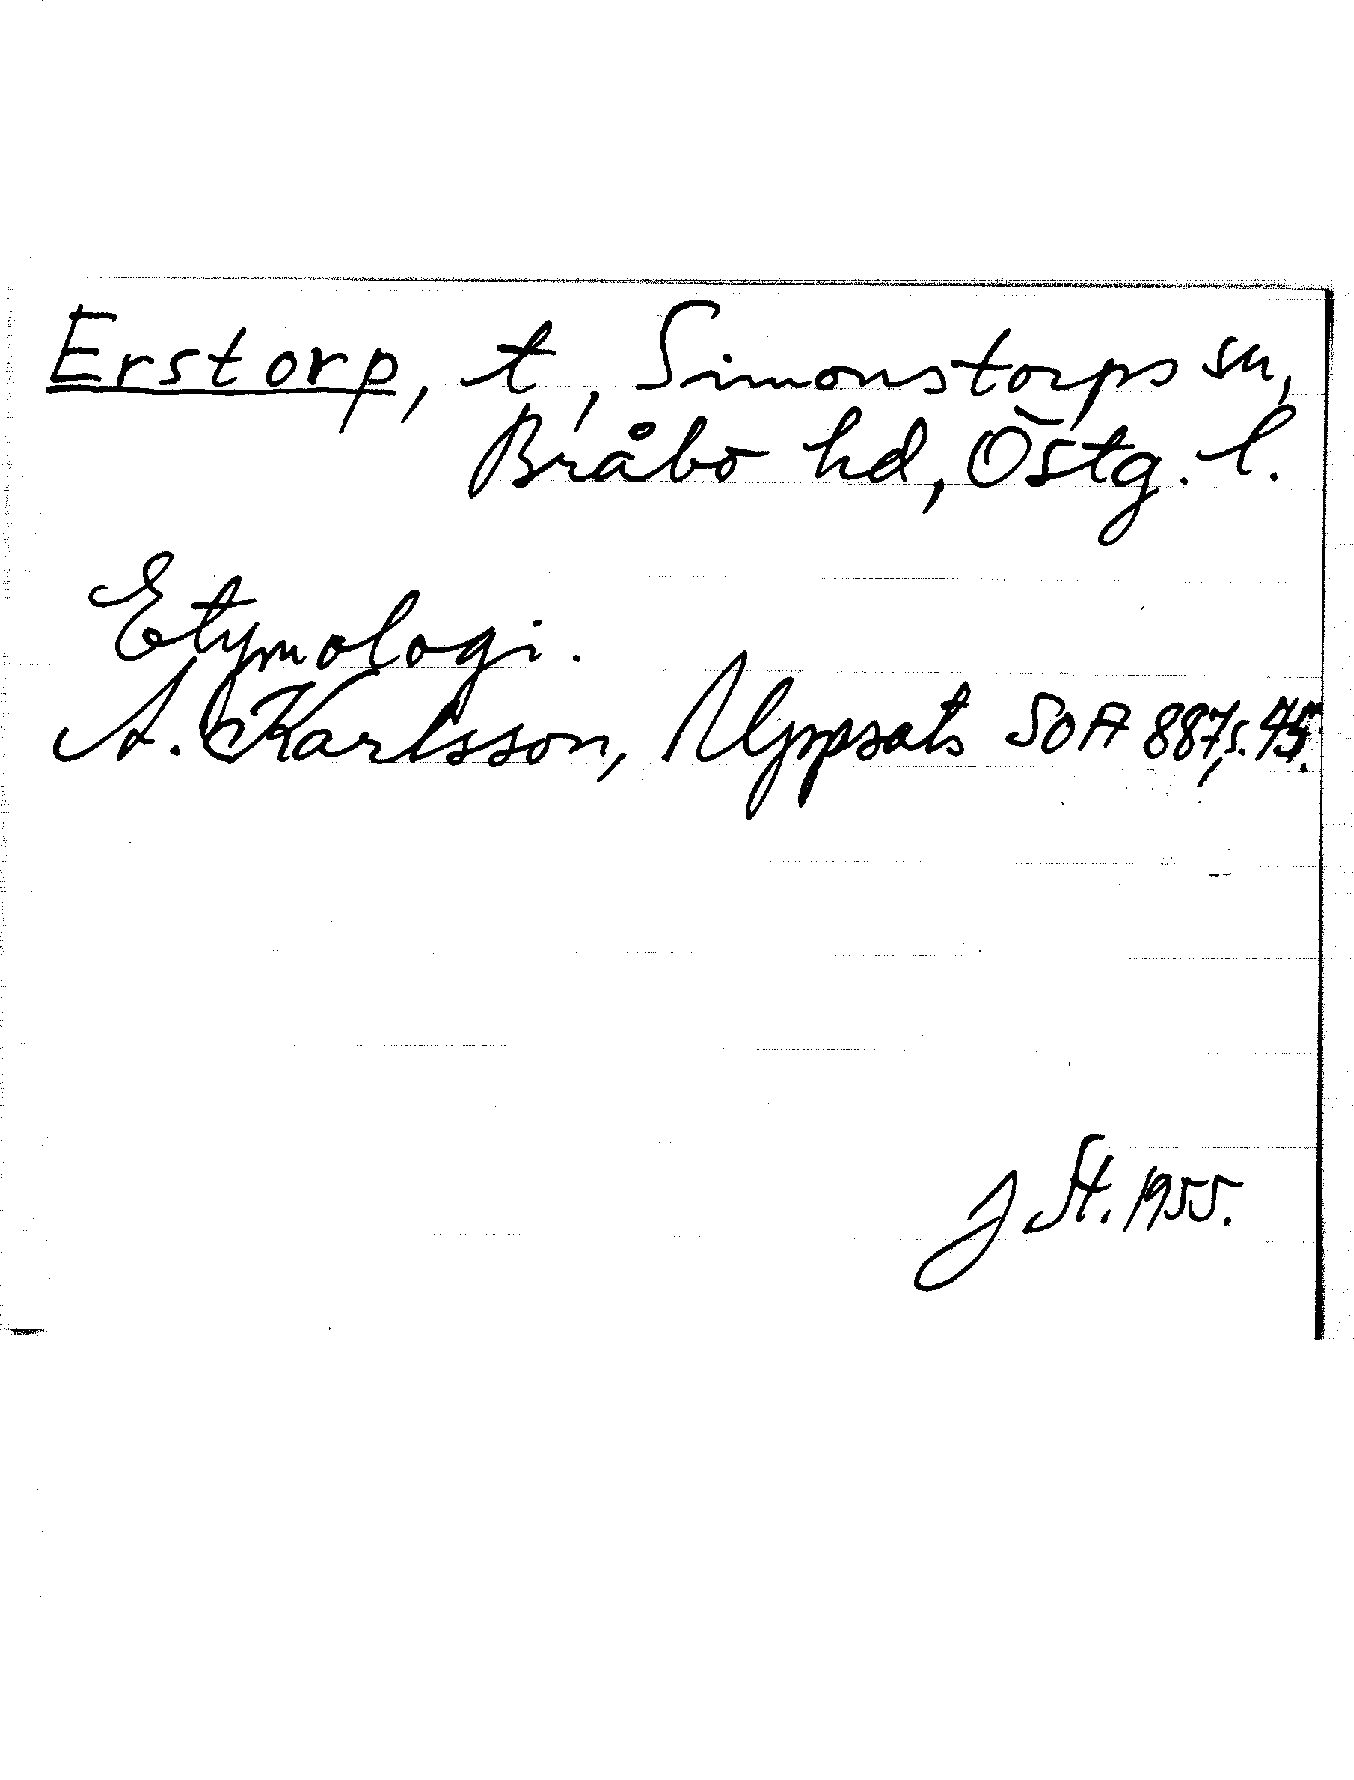 Erstorp, t, Simonstorps sn,
Bråbo hd, Östg. l.
Etymologi.
A. Karlsson, Uppsats SOA 887, s. 45.
J St. 1955.